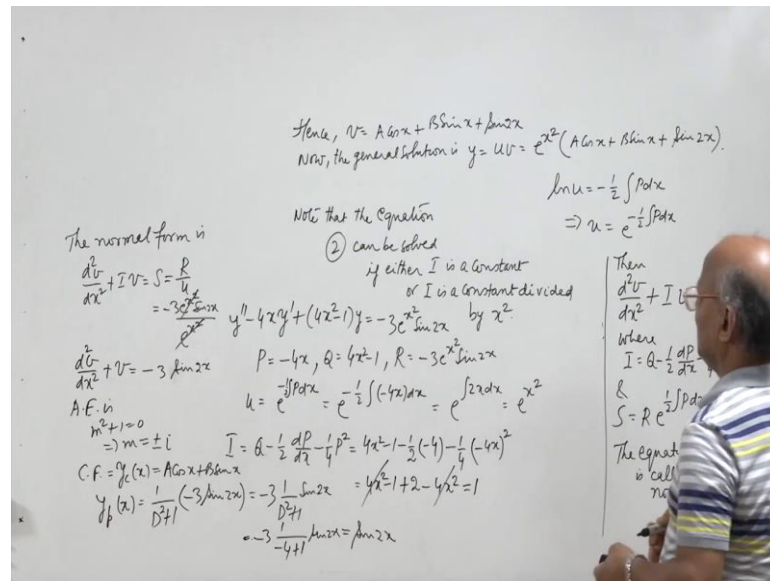 Hence, v = A cos x + B sin x + sin 2x
Now, the general solution is y = uv = e^{x^2} (A cos x + B sin x + sin 2x).
ln u = -\frac{1}{2} ∫Pdx
⇒ u = e^{-\frac{1}{2}∫Pdx}
Note that the equation
② can be solved
if either I is a constant
or I is a constant divided
by x^2.
The normal form is
\frac{d^2v}{dx^2} + I v = S = \frac{R}{u}
= \frac{-3e^{x^2} sin 2x}{e^{x^2}}
\frac{d^2v}{dx^2} + v = -3 sin 2x
A.E. is
m^2+1=0
⇒ m = ± i
C.F. = y_c(x) = A cos x + B sin x
y_p(x) = \frac{1}{D^2+1} (-3 sin 2x) = -3 \frac{1}{D^2+1} sin 2x
= -3 \frac{1}{-4+1} sin 2x = sin 2x
y'' - 4xy' + (4x^2-1)y = -3e^{x^2} sin 2x
P = -4x, Q = 4x^2-1, R = -3e^{x^2} sin 2x
u = e^{-\frac{1}{2}∫Pdx} = e^{-\frac{1}{2}∫(-4x)dx} = e^{∫2xdx} = e^{x^2}
I = Q - \frac{1}{2} \frac{dP}{dx} - \frac{1}{4} P^2 = 4x^2-1-\frac{1}{2}(-4)-\frac{1}{4}(-4x)^2
= 4x^2-1+2-4x^2 = 1
Then
\frac{d^2v}{dx^2} + I
where
I = Q - \frac{1}{2} \frac{dP}{dx} -
&
S = R e^{\frac{1}{2}∫Pd
The
is